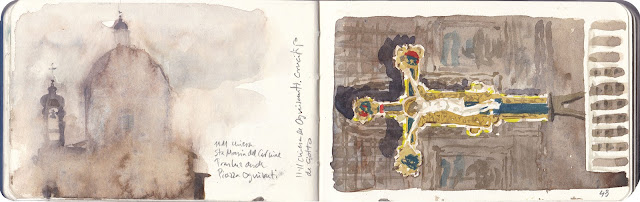 11·11 chiesa
Sta Maria del Carmine
desde
Piazza Ognisanti
11·11 Chiesa di Ognissanti. Crucifijo
de Giotto
43